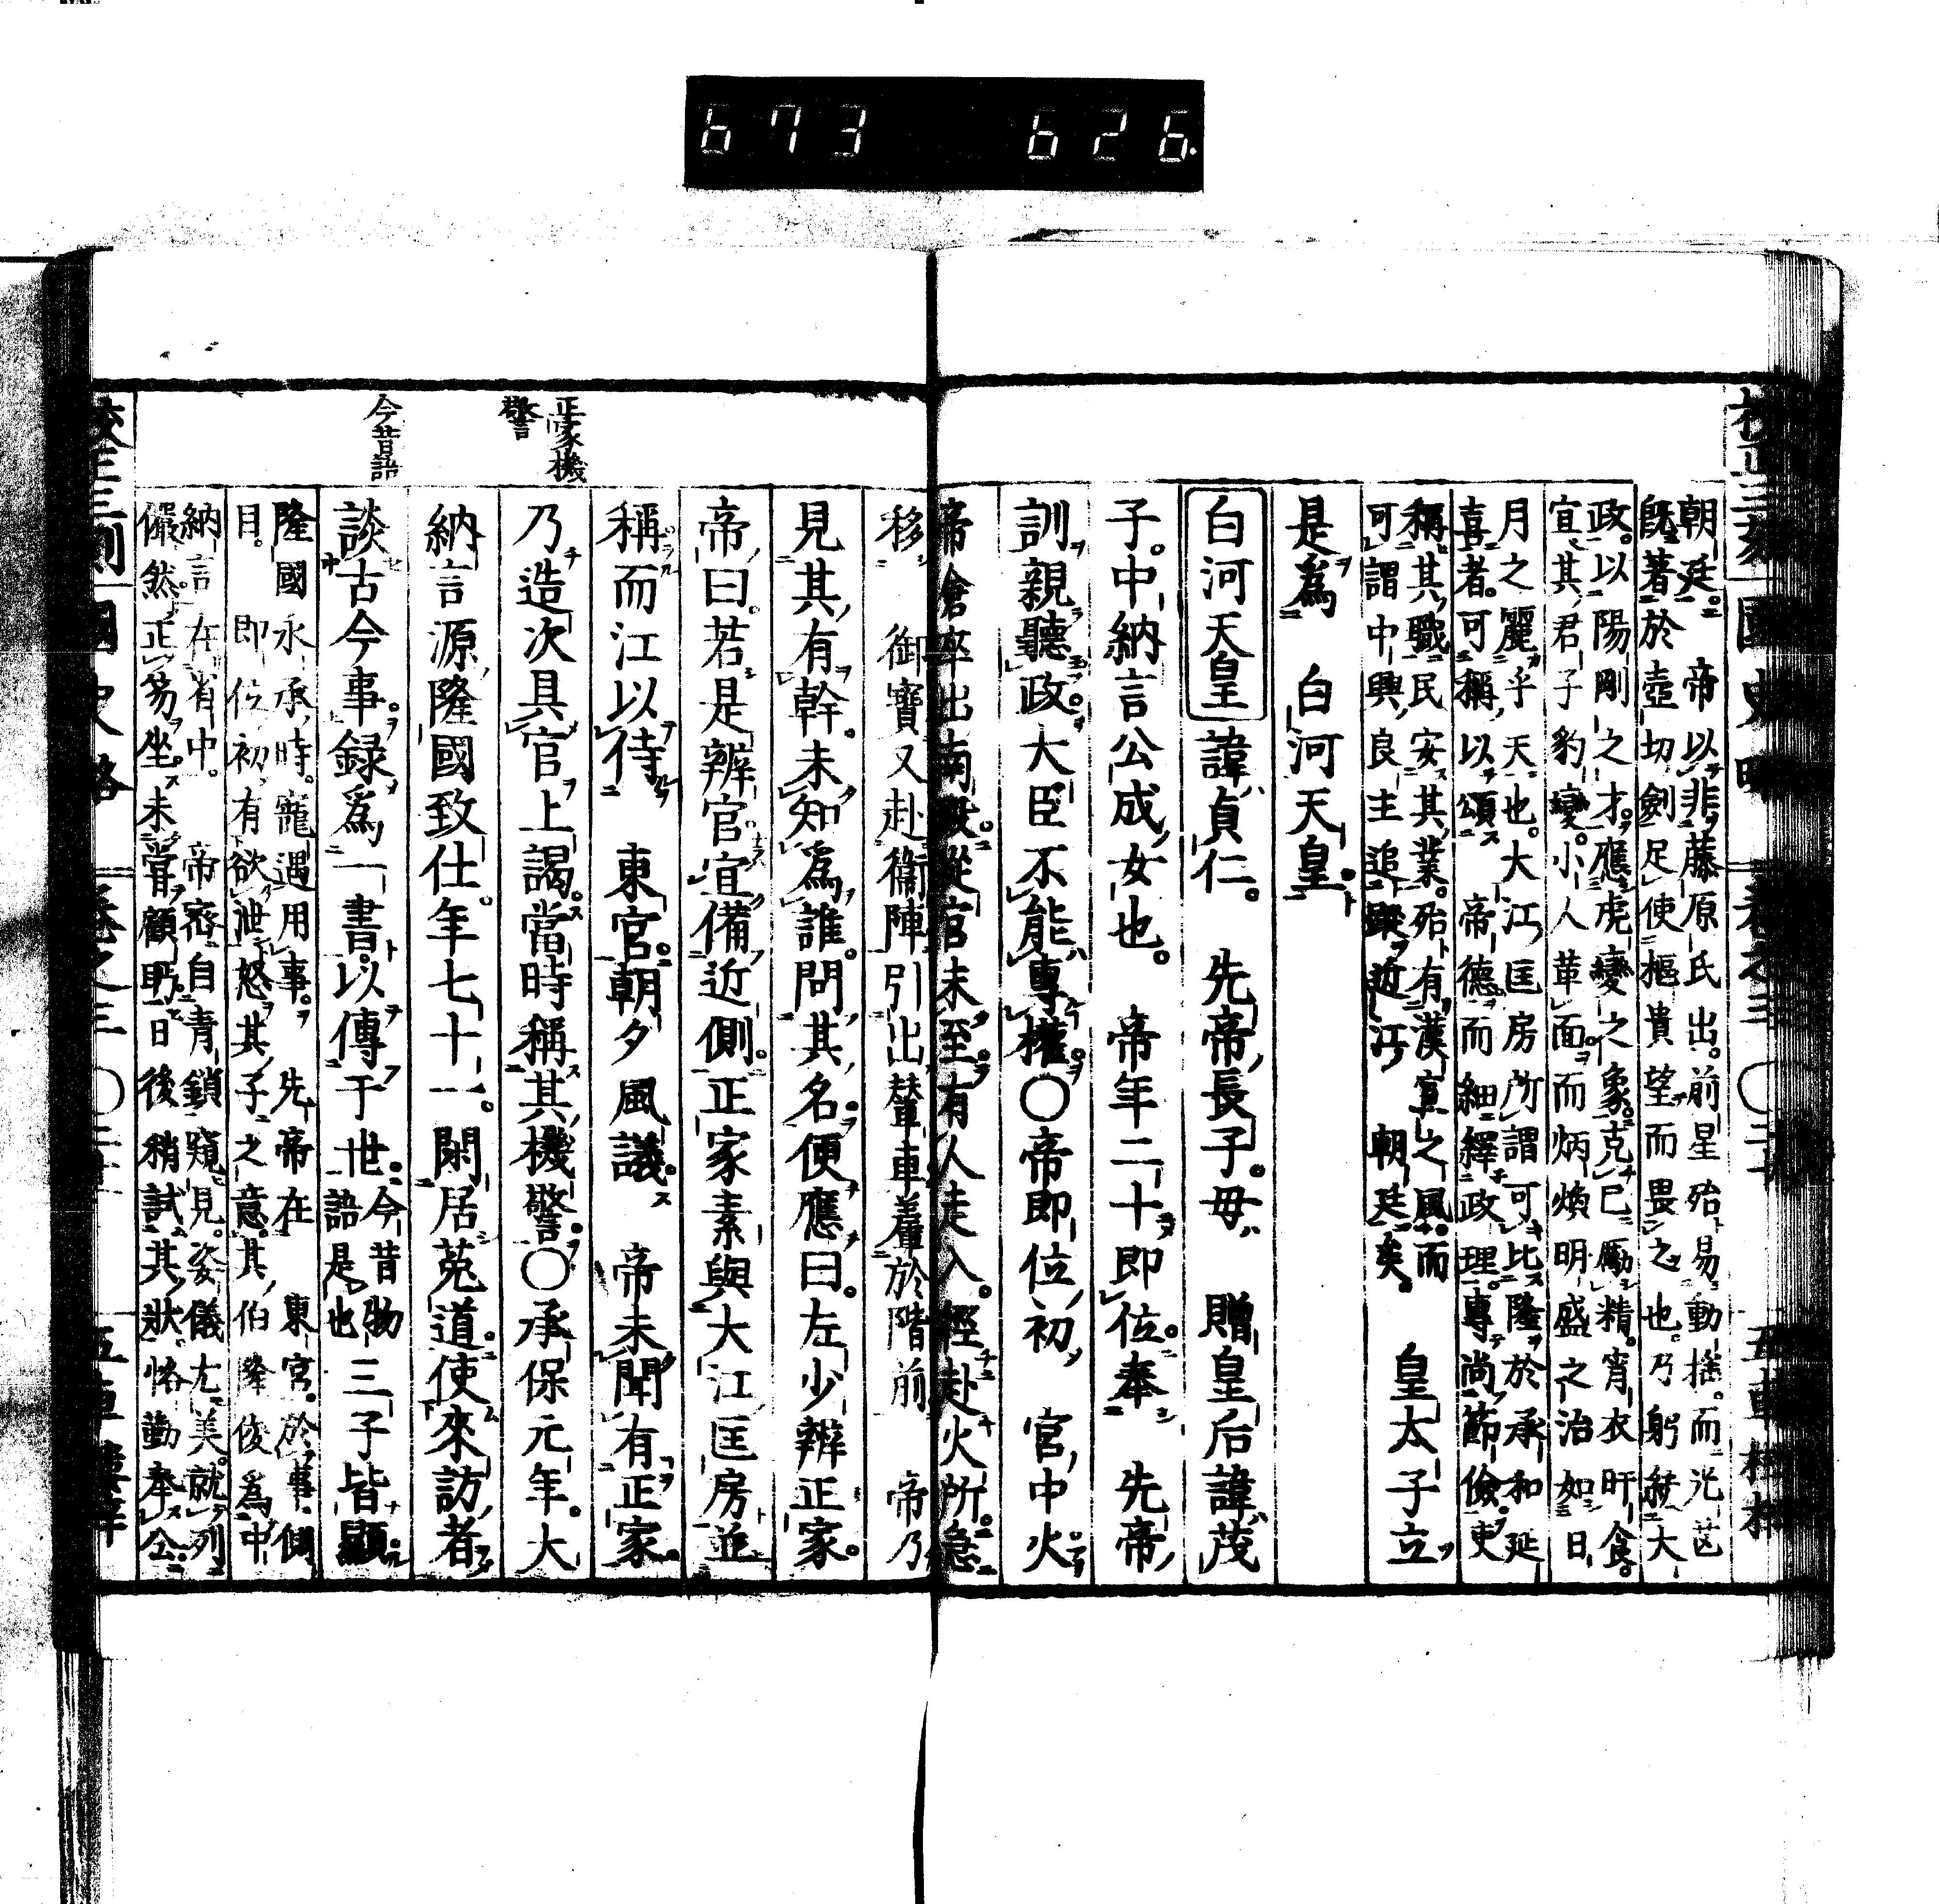 673 626.
校正三刻國史略 卷之三 〇 五車樓梓
朝廷。 帝以非藤原氏出。前星殆易動搖。而光芒
既著於壺切劍足使樞貴望而畏之也。乃躬秉大
政。以陽剛之才。應虎變之象。克己勵精。宵衣旰食。
宜其君子豹變。小人革面。而炳煥明盛之治如日
月之麗乎天也。大江匡房所謂可比隆於承和延
喜者。可稱以頌 帝德而細繹政理。專尚節儉。吏
稱其職民安其業。殆有漢宣之風。而
可謂中興良主追蹤近江 朝廷矣。 皇太子立
是爲 白河天皇。
白河天皇 諱貞仁。 先帝長子。母 贈皇后諱茂
子。中納言公成女也。 帝年二十即位。奉 先帝
訓親聽政。大臣不能專權。〇帝即位初 宮中火
帝倉卒出南殿。從官未至。有人走入。經赴火所。急
移 御寶又赴衞陣引出輦車羞於階前 帝乃
見其有幹。未知爲誰。問其名。便應曰。左少辨正家。
帝曰。若是辨官宜備近側。正家素與大江匡房並
稱而江以待 東宮。朝夕風議。 帝未聞有正家。
乃造次具官上謁。當時稱其機警。〇承保元年。大
納言源隆國致仕。年七十一。閑居菟道。使來訪者
談古今事。録爲一書。以傳于世。今昔物
語是也 三子皆顯。
隆國永承時。寵遇用事。 先帝在 東宮。於事側
目。 即位初有欲泄怒其子之意。其伯隆俊爲中
納言在省中。 帝密自青鎖窺見。姿儀尤美。就列
儼然。正笏坐。未嘗顧眄。日後稍試其狀。恪勤奉公。
正家機
警
今昔語
校正三刻國史略 卷之三 〇 五車樓梓